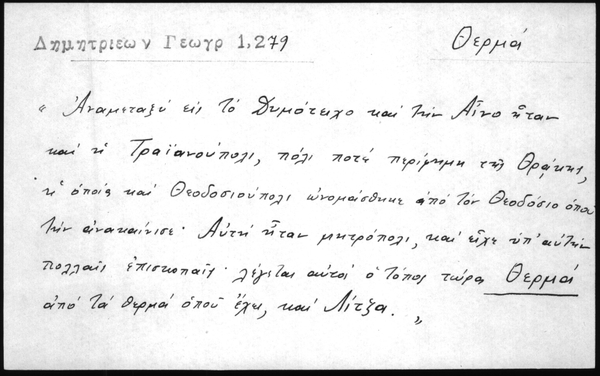 Δημητριεων Γεωγρ 1,279 Θερμά
" Ἀναμεταξύ εἰς τό Δυμότειχο καί τήν Αἶνο ἦταν
καί ἡ Τραϊανούπολι, πόλι ποτέ περίφημη τῆς Θράκης,
ἡ ὁποία καί Θεοδοσιούπολι ὠνομάσθηκε ἀπό τόν Θεοδόσιο ὁποῦ
τήν ἀνακαίνισε· Αὐτή ἦταν μητρόπολι, καί εἶχε ὑπ' αὐτήν
πολλαῖς ἐπισκοπαῖς· λέγεται αὐτός ὁ τόπος τώρα Θερμά
ἀπό τά θερμά ὁποῦ ἔχει, καί Λίτζα. "